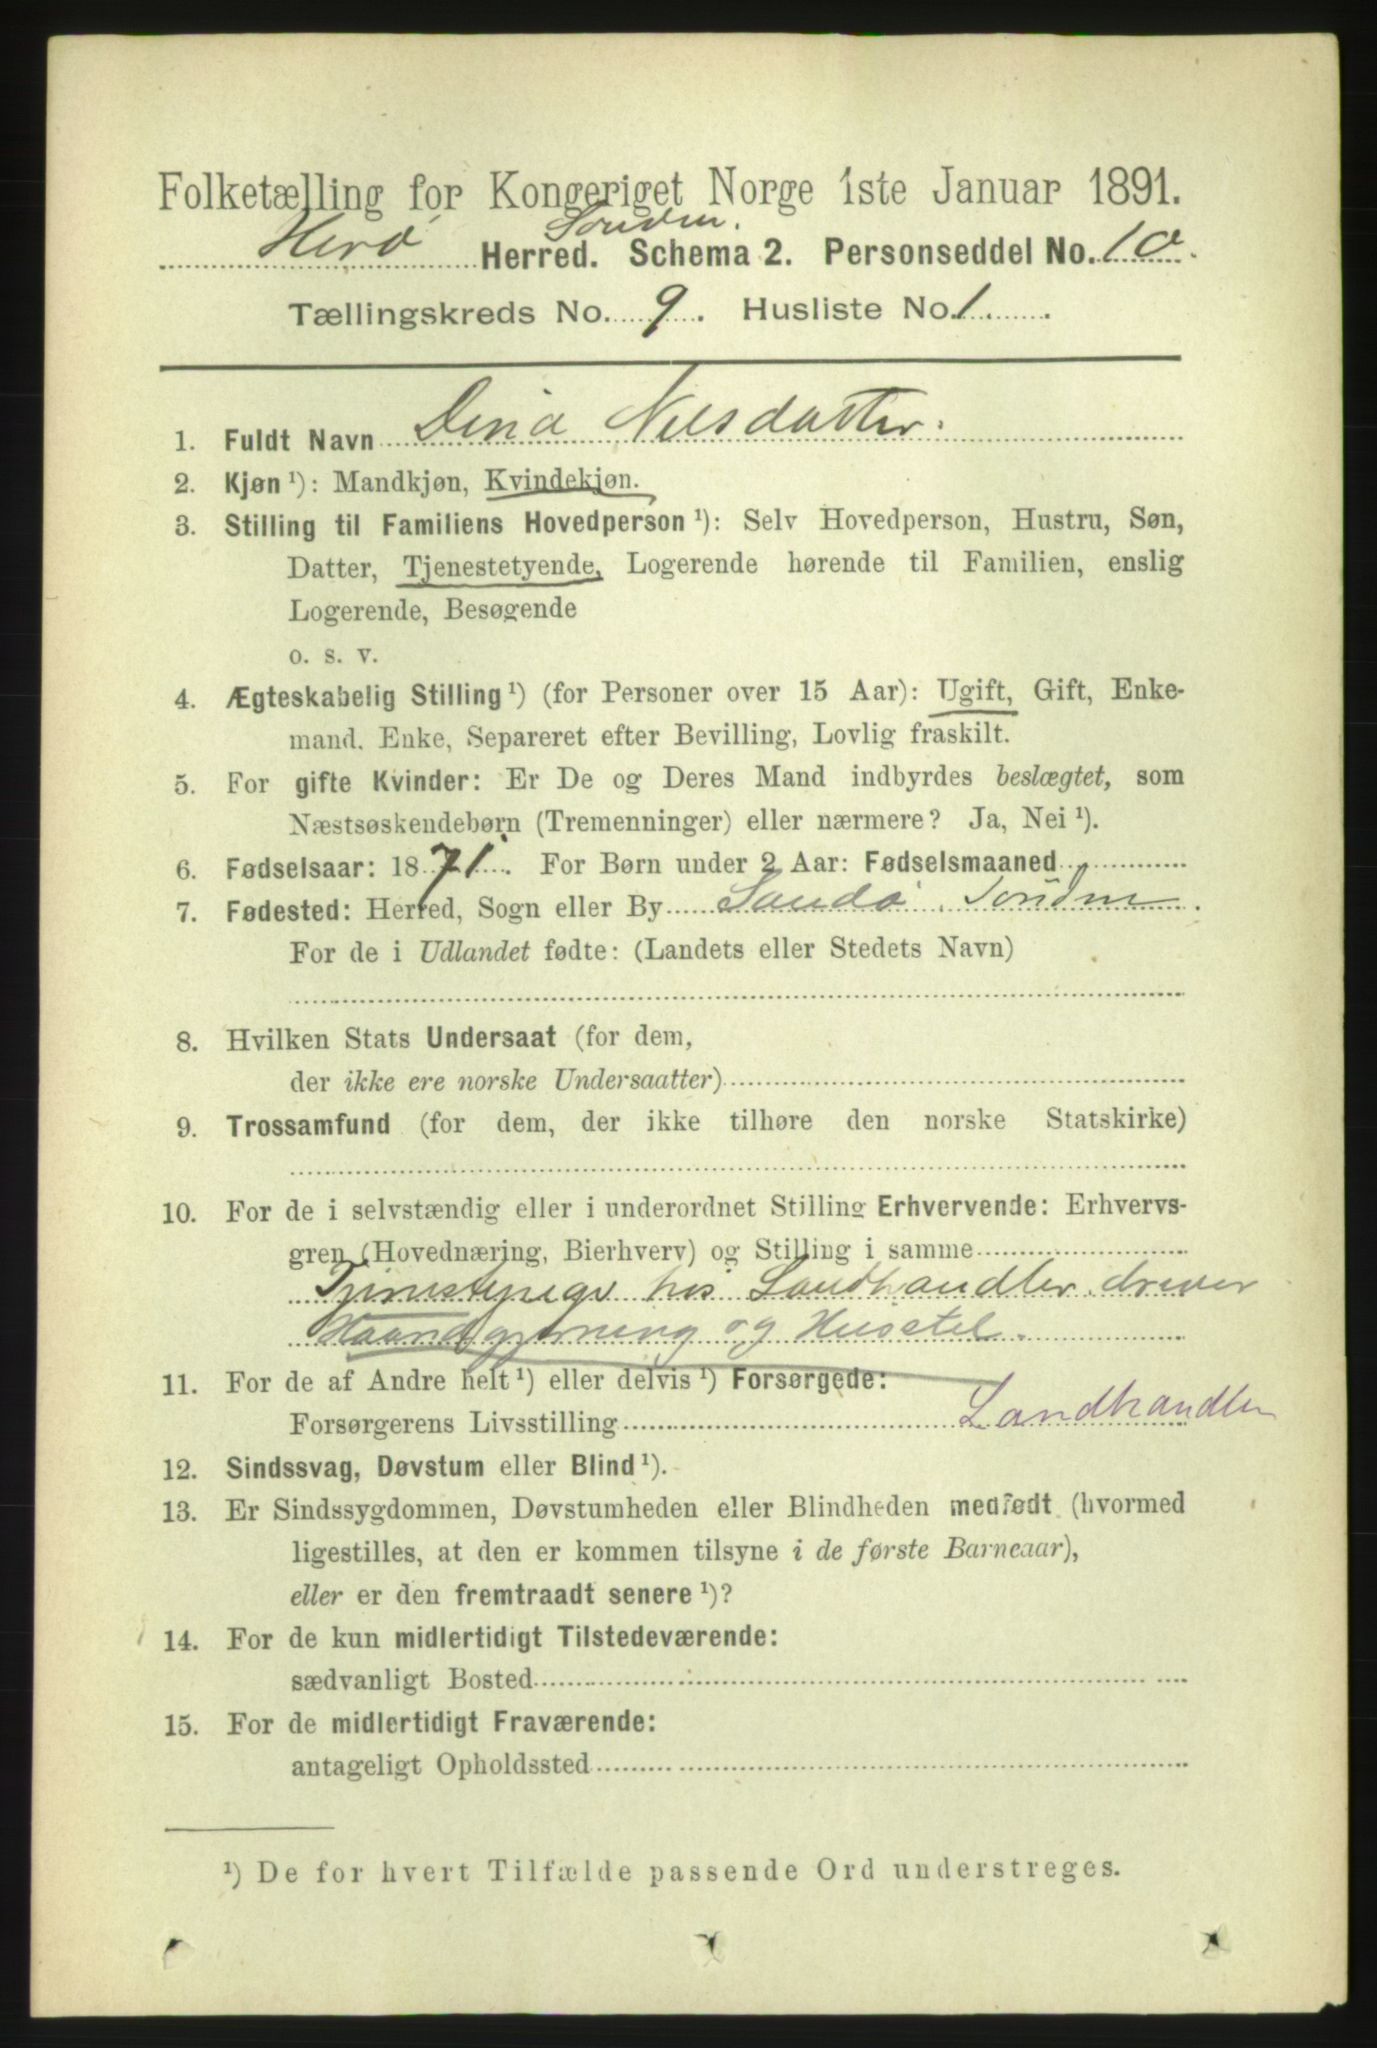 Folketælling for Kongeriget Norge 1ste Januar 1891.
Herø Søndm. Herred. Schema 2. Personseddel No. 10.
Tællingskreds No. 9. Husliste No. 1.
1. Fuldt Navn Dina Nilsdatter.
2. Kjøn ¹): Mandkjøn, Kvindekjøn.
3. Stilling til Familiens Hovedperson ¹): Selv Hovedperson, Hustru, Søn,
Datter, Tjenestetyende, Logerende hørende til Familien, enslig
Logerende, Besøgende
o. s. v.
4. Ægteskabelig Stilling ¹) (for Personer over 15 Aar): Ugift, Gift, Enke-
mand, Enke, Separeret efter Bevilling, Lovlig fraskilt.
5. For gifte Kvinder: Er De og Deres Mand indbyrdes beslægtet, som
Næstsøskendebørn (Tremenninger) eller nærmere? Ja, Nei ¹).
6. Fødselsaar: 1871. For Børn under 2 Aar: Fødselsmaaned
7. Fødested: Herred, Sogn eller By Sandø Søndm.
For de i Udlandet fødte: (Landets eller Stedets Navn)
8. Hvilken Stats Undersaat (for dem,
der ikke ere norske Undersaatter)
9. Trossamfund (for dem, der ikke tilhøre den norske Statskirke)
10. For de i selvstændig eller i underordnet Stilling Erhvervende: Erhvervs-
gren (Hovednæring, Bierhverv) og Stilling i samme
hos Landhandler. driver
Haandgjerning og Husstel.
11. For de af Andre helt ¹) eller delvis ¹) Forsørgede:
Forsørgerens Livsstilling Landhandler
12. Sindssvag, Døvstum eller Blind ¹).
13. Er Sindssygdommen, Døvstumheden eller Blindheden medfødt (hvormed
ligestilles, at den er kommen tilsyne i de første Barneaar),
eller er den fremtraadt senere ¹)?
14. For de kun midlertidigt Tilstedeværende:
sædvanligt Bosted
15. For de midlertidigt Fraværende:
antageligt Opholdssted
¹) De for hvert Tilfælde passende Ord understreges.